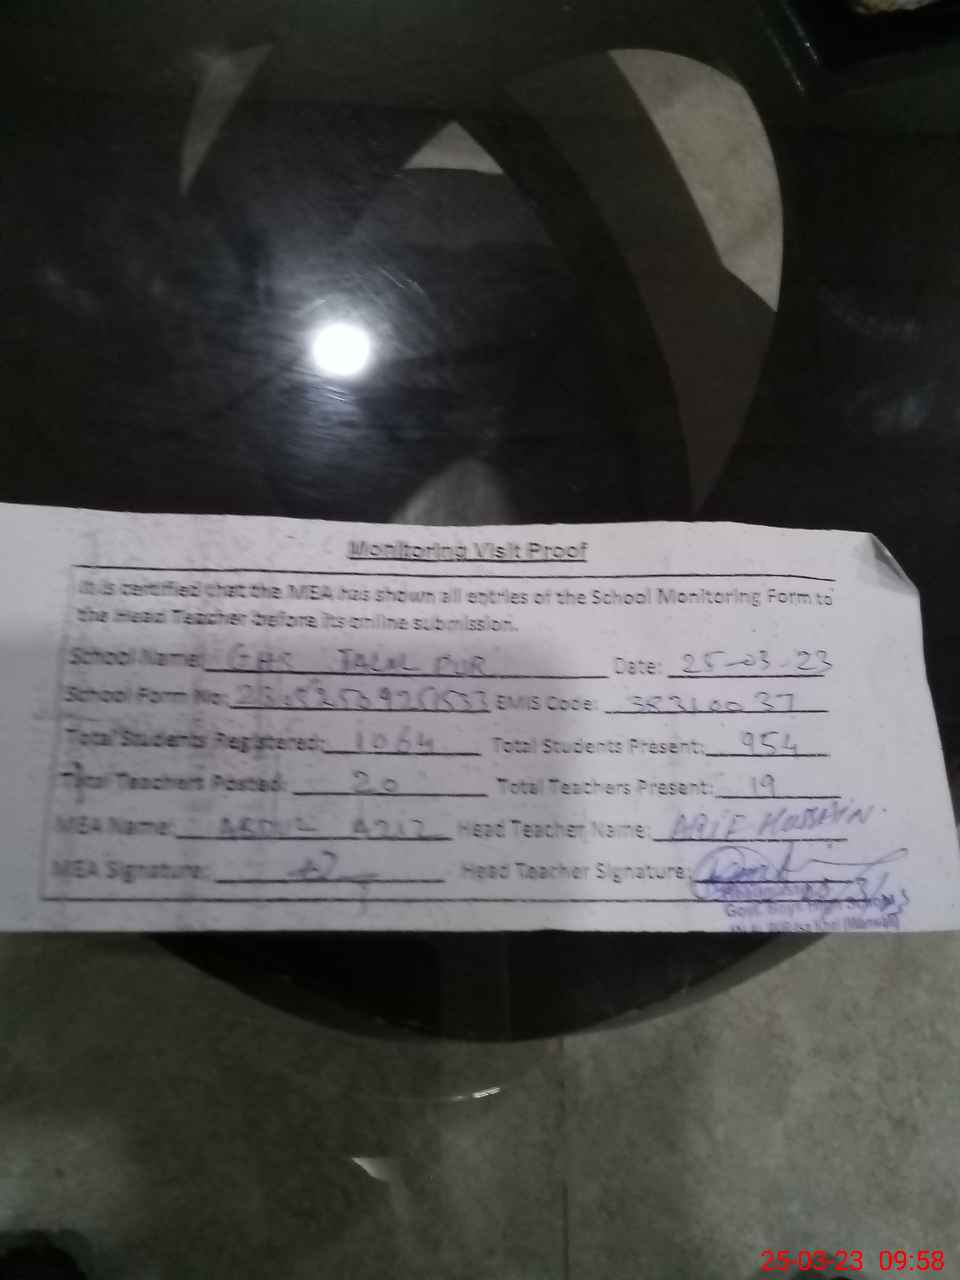 Monitoring Visit Proof
It is certified that the MEA has shown all entries of the School Monitoring Form to
the Head Teacher before its online submission.
School Name: GHS JALAL PUR Date: 25-03-23
School Form No: EMIS Code: 38310037
Total Students Registered: 1064 Total Students Present: 954
Total Teachers Posted: 20 Total Teachers Present: 19
MEA Name: ABDUL AZIZ Head Teacher Name: ARIF HUSSAIN
MEA Signature: Head Teacher Signature:
Govt. Boys High School
25-03-23 09:58